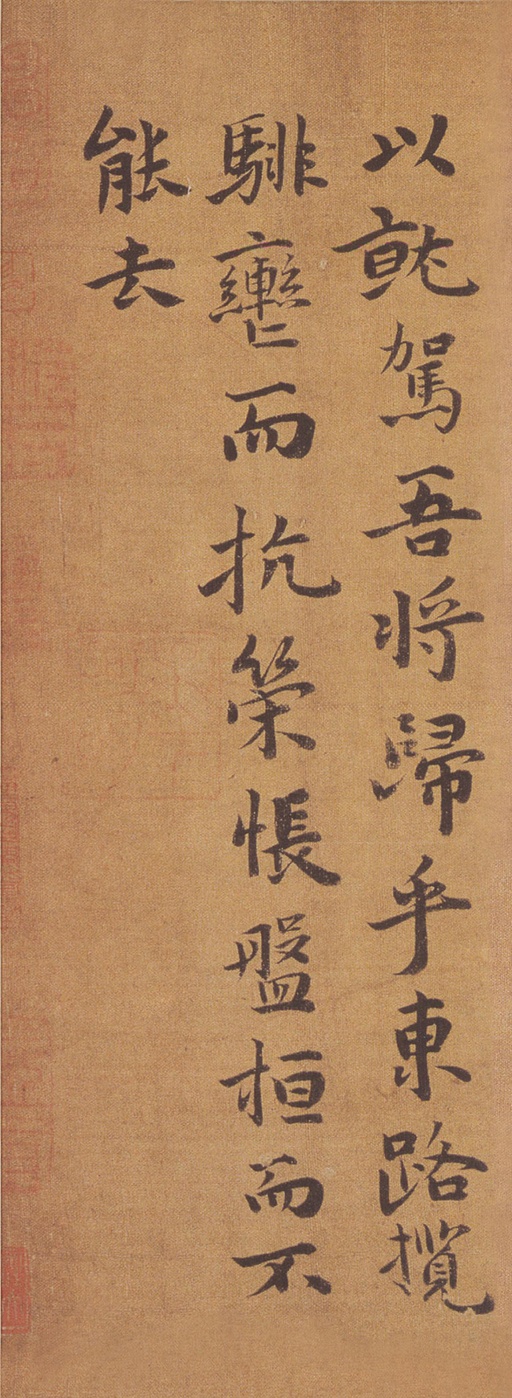 以就駕吾將歸乎東路攬
騑轡而抗策悵盤桓而不
能去